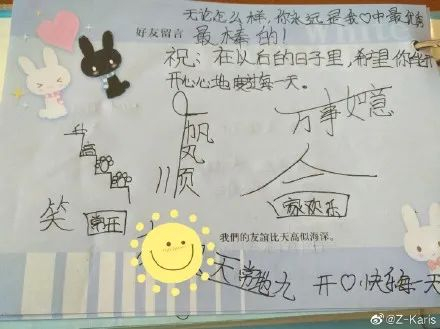 无论怎么样，你永远是我♡中最
好友留言
最棒的！
祝：在以后的日子里，希望你
开心心地度过每一天。
高
帆
风
顺
万事如意
家欢乐
笑
常开
我們的友誼比天高似海深。
天
九
开♡快 每一天
@Z-Karis